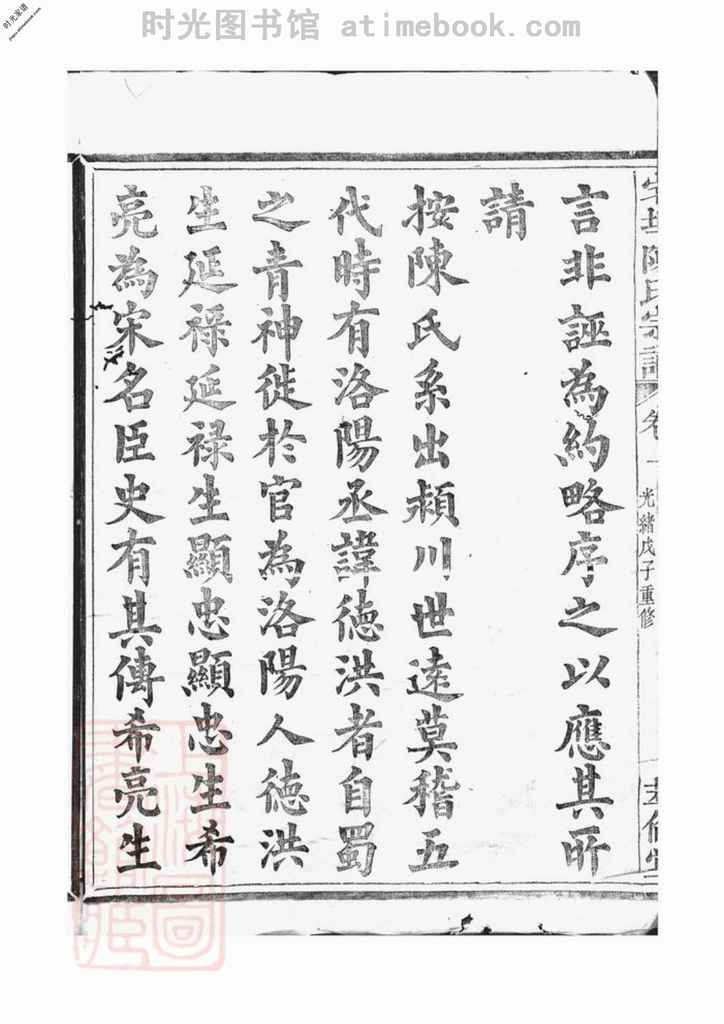 时光图书馆 atimebook.com
时光家谱
陳氏宗譜 卷一 光緒戊子重修
言非誣為約略序之以應其所
請
按陳氏系出潁川世遠莫稽五
代時有洛陽丞諱德洪者自蜀
之青神徙於官為洛陽人德洪
生延祿延祿生顯忠顯忠生希
亮為宋名臣史有其傳希亮生